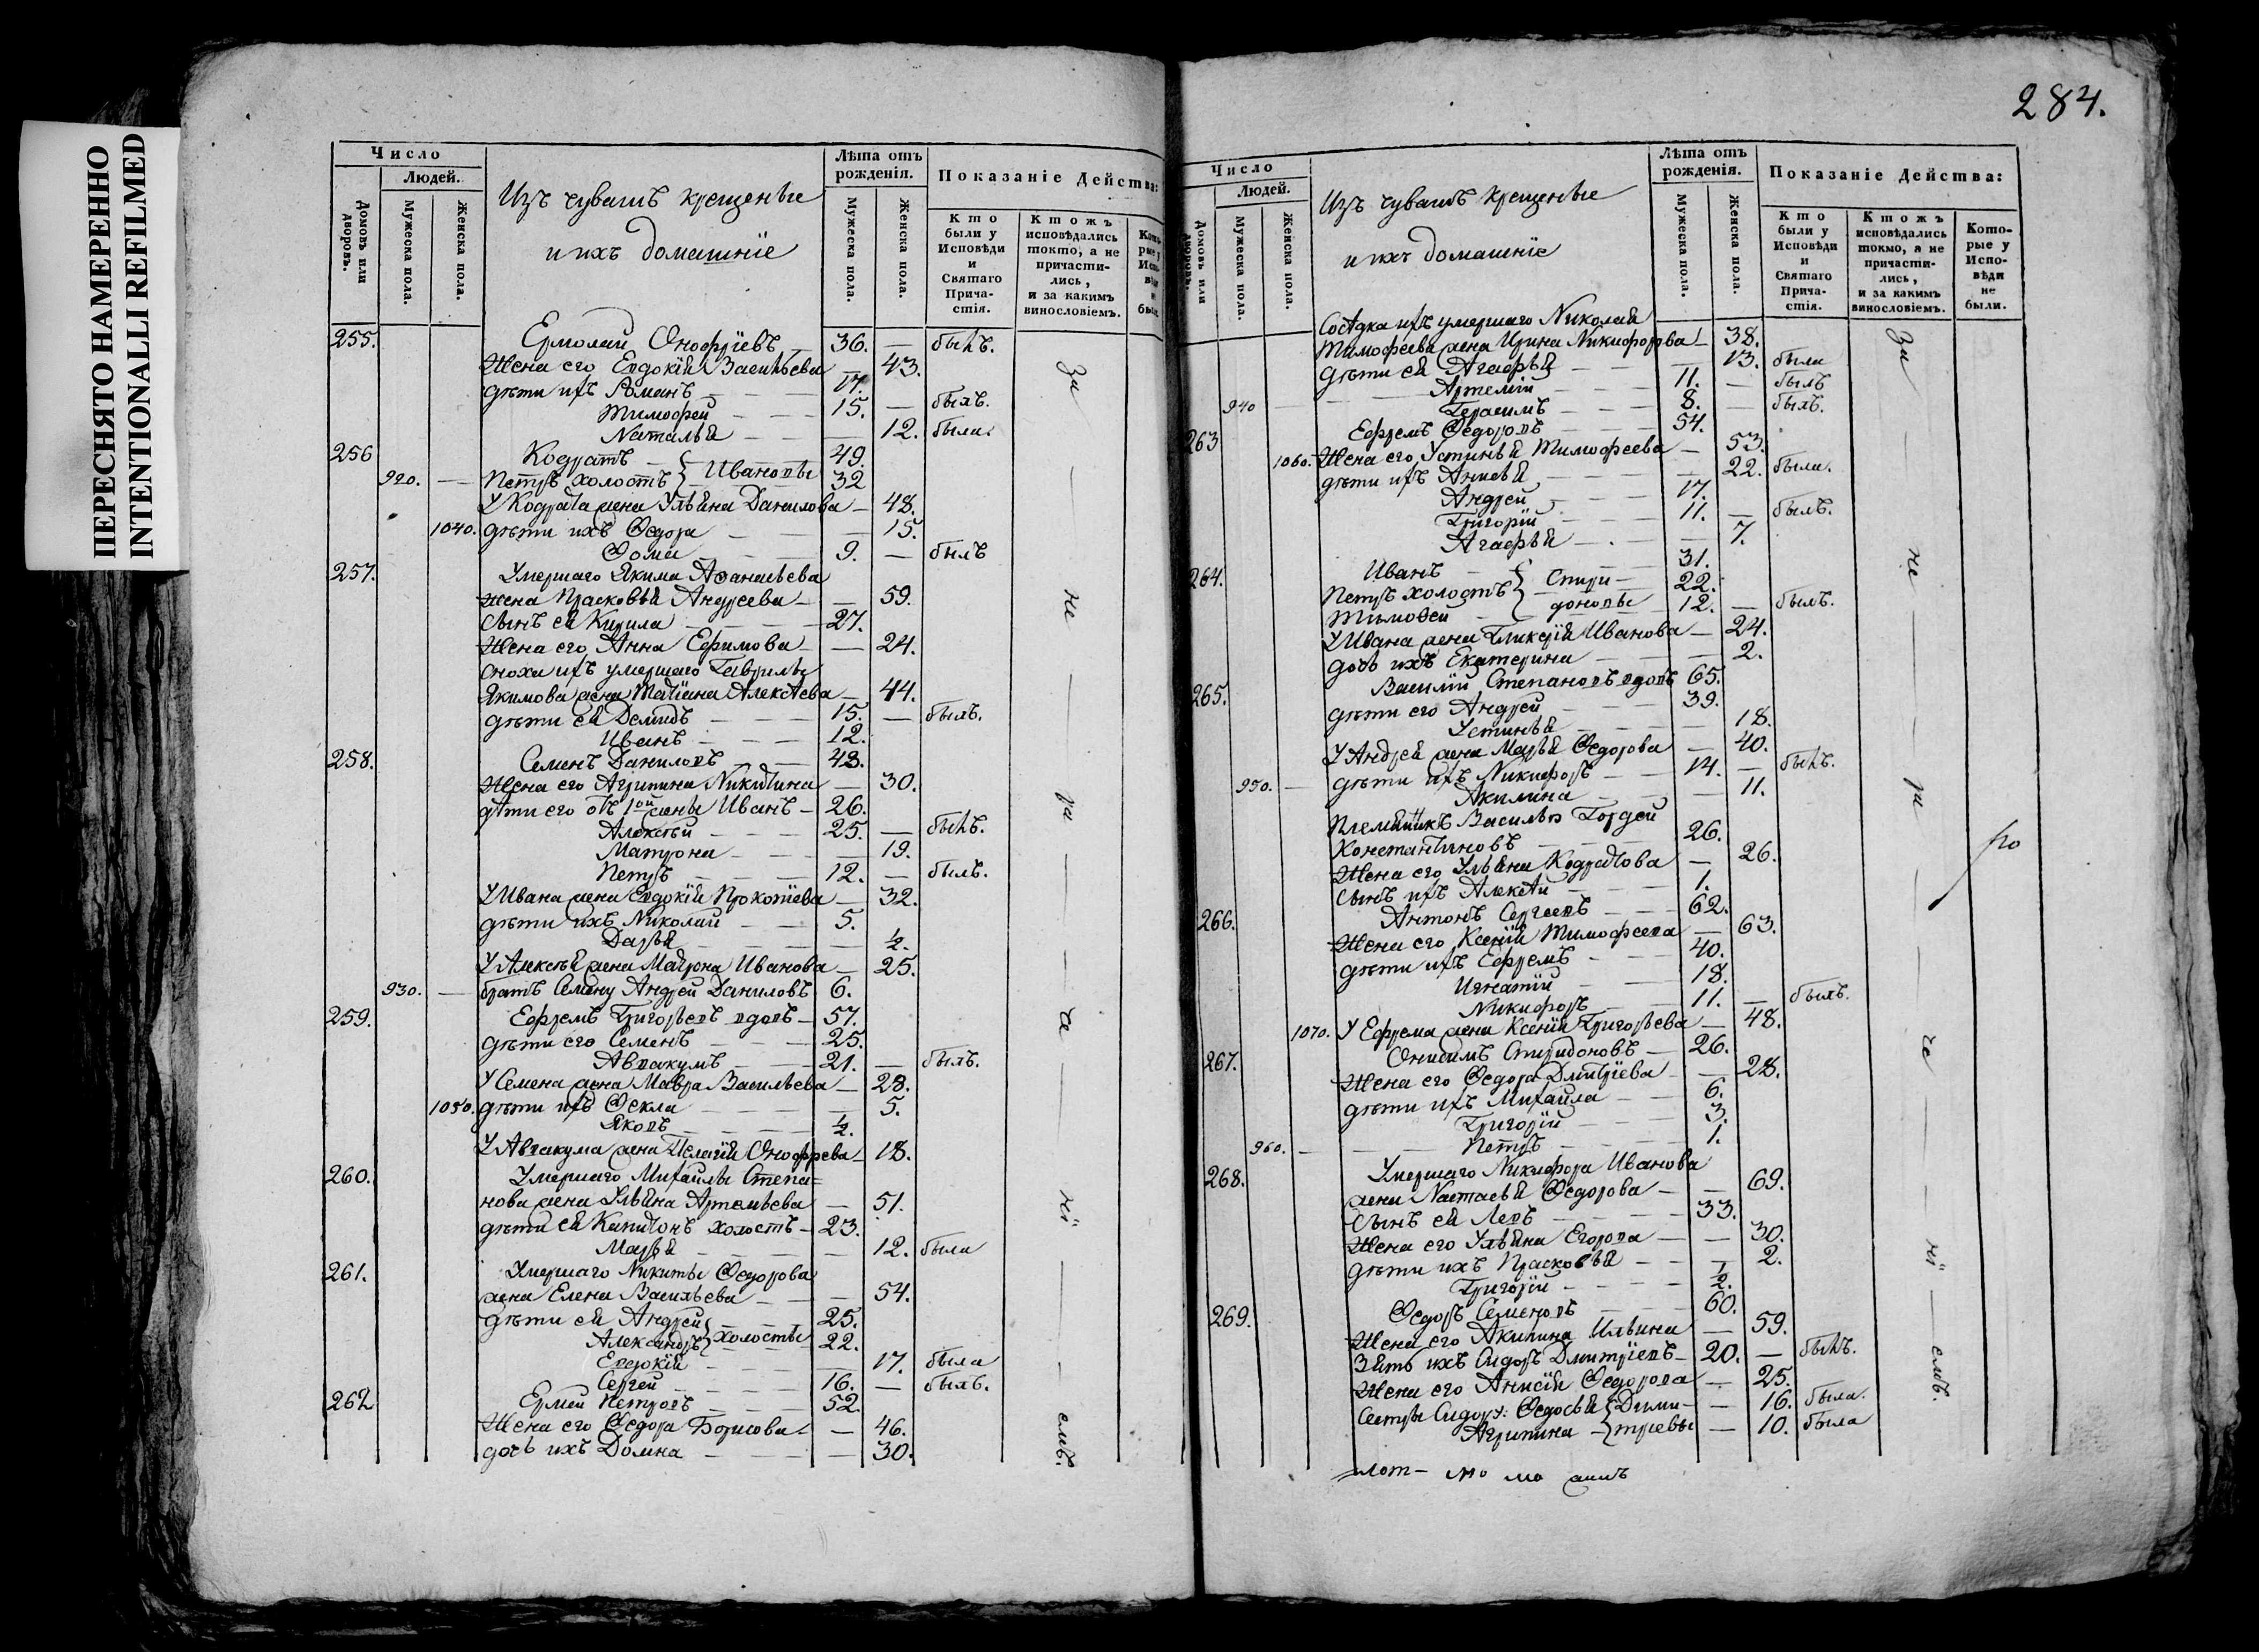 ПЕРЕСНЯТО НАМЕРЕННО
INTENTIONALLI REFILMED
284.
Число
Людей.
Домовъ или дворовъ.
Мужеска пола.
Женска пола.
Изъ чувашъ крещеные
и ихъ домашніе
Лѣта отъ рожденія.
Мужеска пола.
Женска пола.
Показаніе Действа:
Кто были у Исповѣди и Святаго Причастія.
Ктожъ исповѣдались токмо, а не причастились, и за какимъ винословіемъ.
255. Ермолай Онофріевъ — 36. — былъ.
Жена его Евдокія Васильева — 43.
дѣти ихъ Романъ — 17.
Тимофей — 15. — былъ.
Наталья — 12. была.
256 Кодратъ — 49.
920. — Петръ холостъ Ивановы 32
У Кодрата жена Ульяна Данилова — 48.
1040. дѣти ихъ Федора — 15.
Фома — 9. — былъ
257. Умершаго Якима Афанасьева
жена Прасковья Андреева — 59.
Сынъ ея Кирила — 27.
Жена его Анна Ефимова — 24.
Сноха ихъ умершаго Гаврилы
Якимова жена Татіана Алексѣева — 44.
дѣти ея Демидъ — 15. — былъ.
Иванъ — 12.
258. Семенъ Даниловъ — 48.
Жена его Агрипина Никитина — 30.
дѣти его отъ 1ой жены Иванъ — 26.
Алексѣй — 25. — былъ.
Матрона — 19.
Петръ — 12. — былъ.
У Ивана жена Евдокія Прокопіева — 32.
дѣти ихъ Николай — 5.
Дарья — ½.
У Алексѣя жена Матрона Иванова — 25.
930. — братъ Семену Андрей Даниловъ 6.
259. Ефремъ Григорьевъ вдовъ — 57.
дѣти его Семенъ — 25.
Аввакумъ — 21. — былъ.
У Семена жена Мавра Васильева — 28.
1050. дѣти ихъ Фекла — 5.
Яковъ — ½.
У Аввакума жена Пелагія Онофрева — 18.
260. Умершаго Михайлы Степа=
нова жена Ульяна Артемьева — 51.
дѣти ея Капитонъ холостъ — 23.
Марья — 12. была
261. Умершаго Никиты Федорова
жена Елена Васильева — 54.
дѣти ея Андрей 25.
Александръ холосты 22.
Евдокія — 17. была
Сергей — 16. — былъ.
262 Ермей Петровъ — 52.
Жена его Федора Борисова — 46.
дочь ихъ Домна — 30.
за — не — ра — че — ні — емъ.
Число
Людей.
Домовъ или дворовъ.
Мужеска пола.
Женска пола.
Изъ чувашъ крещеные
и ихъ домашніе
Лѣта отъ рожденія.
Мужеска пола.
Женска пола.
Показаніе Действа:
Кто были у Исповѣди и Святаго Причастія.
Ктожъ исповѣдались токмо, а не причастились, и за какимъ винословіемъ.
Которые у Исповѣди не были.
Сосѣдка ихъ умершаго Николая
Тимофеева жена Ирина Никифорова — 38.
дѣти ея Агафья — 13. была
Артемій — 11. — былъ
940 — Герасимъ — 8. — былъ.
263 Ефремъ Федоровъ 54.
1060. Жена его Устинья Тимофеева — 53.
дѣти ихъ Анисья — 22. была.
Андрей — 17.
Григорій — 11. — былъ.
Агафья — 7.
264. Иванъ — 31.
Петръ холостъ Спири- 22.
Тимофей доновы 12. — былъ.
У Ивана жена Гликерія Иванова — 24.
дочь ихъ Екатерина — 2.
265. Василій Степановъ вдовъ 65.
дѣти его Андрей — 39.
Устинья — 18.
У Андрея жена Марья Федорова — 40.
950. — дѣти ихъ Никифоръ — 14. — былъ.
Акилина — 11.
Племянникъ Василью Гордей
Константиновъ — 26.
Жена его Ульяна Кодратова — 26.
Сынъ ихъ Алексѣй — 1.
266. Антонъ Сергеевъ — 62.
Жена его Ксенія Тимофеева — 63.
дѣти ихъ Ефремъ — 40.
Игнатій — 18.
Никифоръ — 11. — былъ.
1070. У Ефрема жена Ксенія Григорьева — 48.
267. Онисимъ Спиридоновъ — 26.
Жена его Федора Дмитріева — 28.
дѣти ихъ Михайла — 6.
Григорій — 3.
960. — Петръ — 1.
268. Умершаго Никифора Иванова
жена Настасья Федорова — 69.
Сынъ ея Левъ — 33.
Жена его Ульяна Егорова — 30.
дѣти ихъ Прасковья — 2.
Григорій — ½.
269. Федоръ Семеновъ 60.
Жена его Акилина Ильина — 59.
Зять ихъ Сидоръ Дмитріевъ — 20. — былъ.
Жена его Анисія Федорова — 25.
Сестры Сидору: Федосья Дми- — 16. была.
Агрипина тріевы — 10. была
за — не — ра — че — ні — емъ.